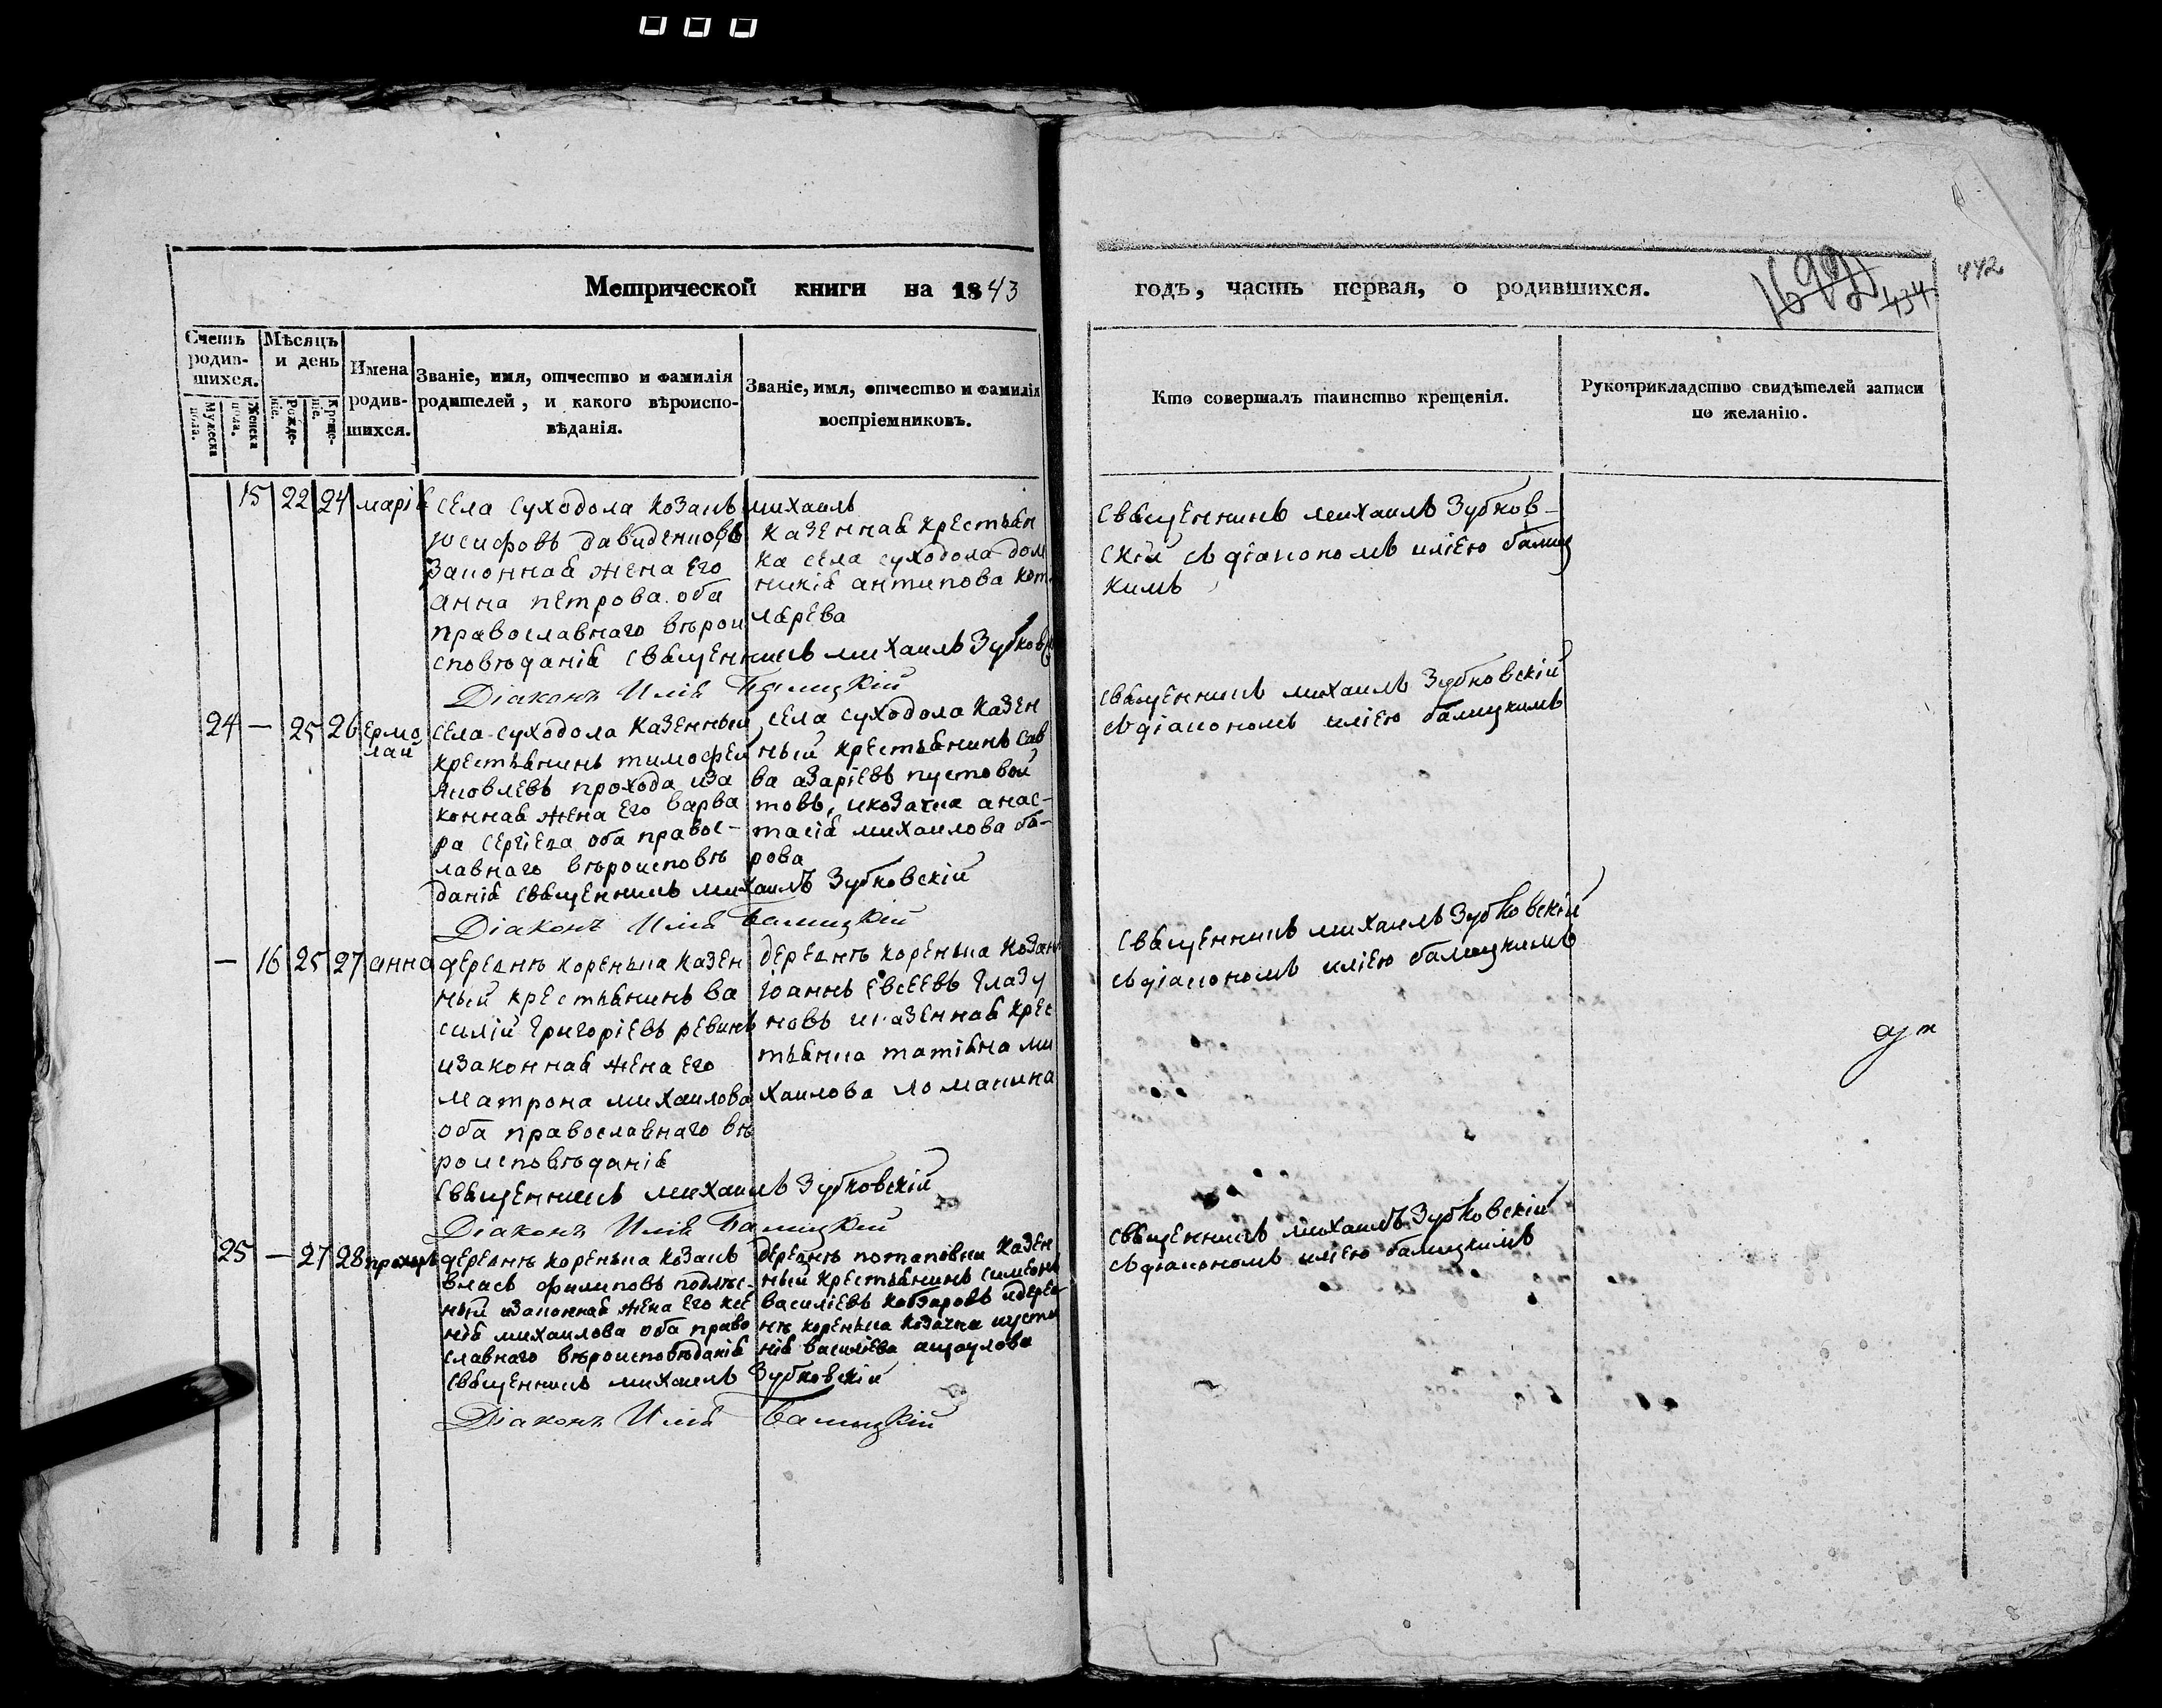 Метрической книги на 1843
годъ, часть первая, о родившихся.
1692
434
442
Счетъ родив-
шихся.
Мужеска пола.
Женска пола.
Мѣсяцъ и день
Рожде-
ніе.
Креще-
ніе.
Имена
родив-
шихся.
Званіе, имя, отчество и фамилія
родителей, и какого вѣроиспо-
вѣданія.
Званіе, имя, отчество и фамилія
воспріемниковъ.
Кто совершалъ таинство крещенія.
Рукоприкладство свидѣтелей записи
по желанію.
15 22 24 маріа
села суходола козакъ
іосифовъ давиденковъ
законная жена его
анна петрова оба
православнаго вѣрои
сповѣданія священникъ михаилъ Зубков
Діаконъ Илія Балицкій
михаилъ
казенная крестьян
ка села суходола дом
никіа антипова кот
ларева
священникъ михаилъ Зубков-
скій съ діакономъ иліею балиц
кимъ
24 — 25 26 Ермо
лай
села суходола казенный
крестьянинъ тимофей
яковлевъ прохода иза
конная жена его варва
ра сергіева оба правос-
лавнаго вѣроисповѣ
данія священникъ михаилъ Зубковскій
Діаконъ Илія Балицкій
села суходола казен
ный крестьянинъ сав
ва азаріевъ пустовой
товъ, икозачка анас-
тасія михаилова ба-
рова
священникъ михаилъ Зубковскій
съ діакономъ иліею балицкимъ
— 16 25 27 анна
деревнѣ коренька казен
ный крестьянинъ ва
силій григоріевъ ревинъ
изаконная жена его
матрона михаилова
оба православнаго вѣ
роисповѣданія
священникъ михаилъ Зубковскій
Діаконъ Илія Балицкій
деревнѣ коренька козакъ
іоаннъ Евсеевъ глазу
новъ иказенная крес
тьянка татіяна ми
хаилова ломакина
священникъ михаилъ Зубковскій
съ діакономъ иліею балицкимъ
25 — 27 28 прохоръ
деревнѣ коренька козакъ
власъ филиповъ подлѣс-
ный изаконная жена его ксе
нія михаилова оба право
славнаго вѣроисповѣданія
священникъ михаилъ Зубковскій
Діаконъ Илія Балицкій
деревнѣ потаповки казен
ный крестьянинъ симеонъ
василіевъ кобзаровъ идерев
нѣ коренька козачка иусти
нія василіева
священникъ михаилъ Зубковскій
съ діакономъ иліею балицкимъ